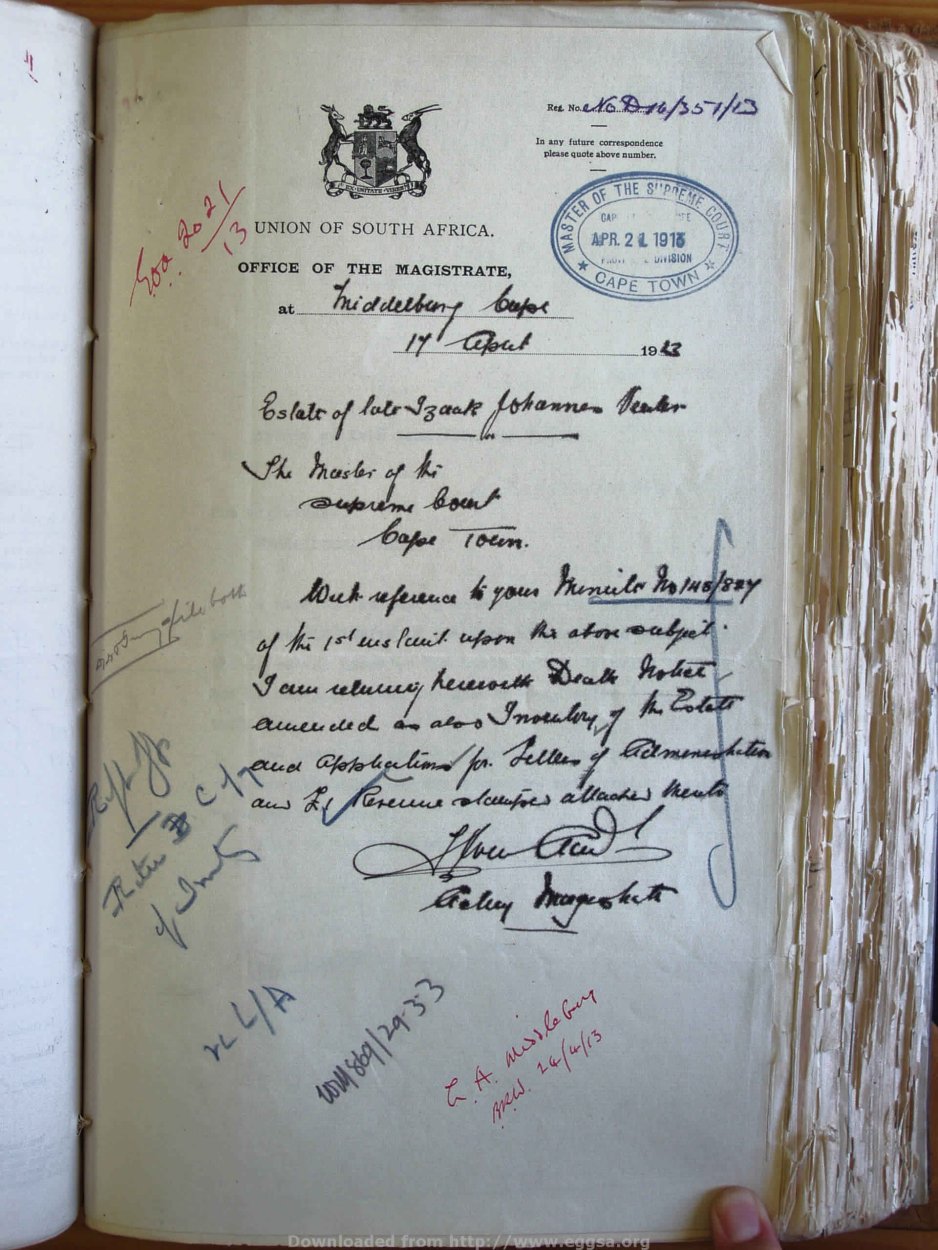 Reg. No. No D 16/351/13
In any future correspondence
please quote above number.
EX UNITATE VIRES
MASTER OF THE SUPREME COURT
APR. 21 1913
DIVISION
CAPE TOWN
2021
13
UNION OF SOUTH AFRICA.
OFFICE OF THE MAGISTRATE,
at Middelburg Cape
17 April 1913
Estate of late Izaak Johannes Venter
The Master of the
Supreme Court
Cape Town.
With reference to your Minute No 148/827
of the 1st instant upon the above subject.
I am returning herewith Death Notice
amended as also Inventory of the Estate
and application for Letters of Administration
and £1 Revenue stamps attached thereto
Acting Magistrate
file both
L/A
29.3.3
L. A. Middleburg
24/4/13
Downloaded from http://www.eggsa.org